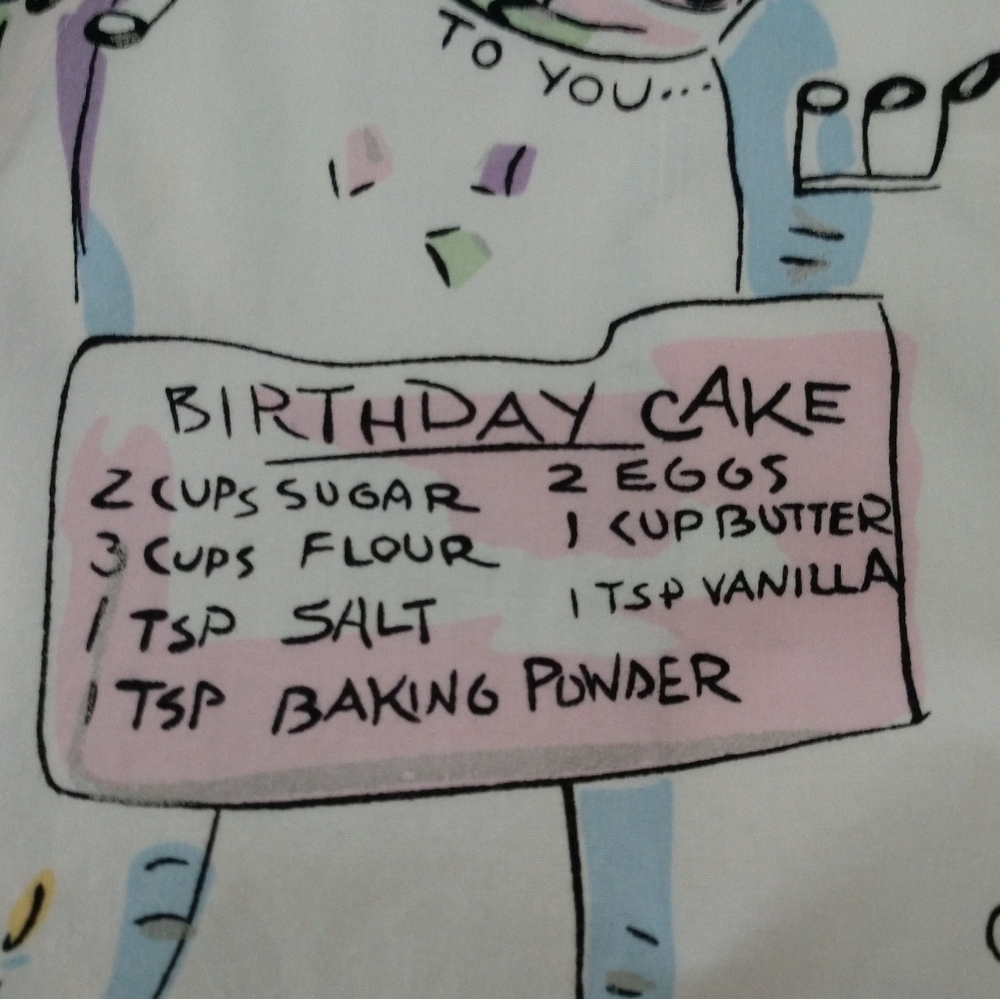 TO YOU...
BIRTHDAY CAKE
2 CUPS SUGAR
3 CUPS FLOUR
1 TSP SALT
1 TSP BAKING POWDER
2 EGGS
1 CUP BUTTER
1 TSP VANILLA